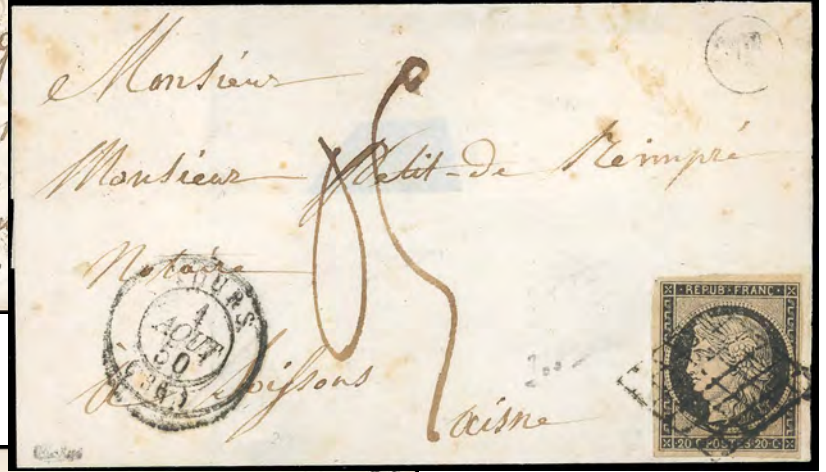 Monsieur
Monsieur Petit-de Reimpré
Notaire
à Soissons
aisne
TOURS
1
AOUT
50
(36)
REPUB·FRANC·
20·C·POSTES·20·C·